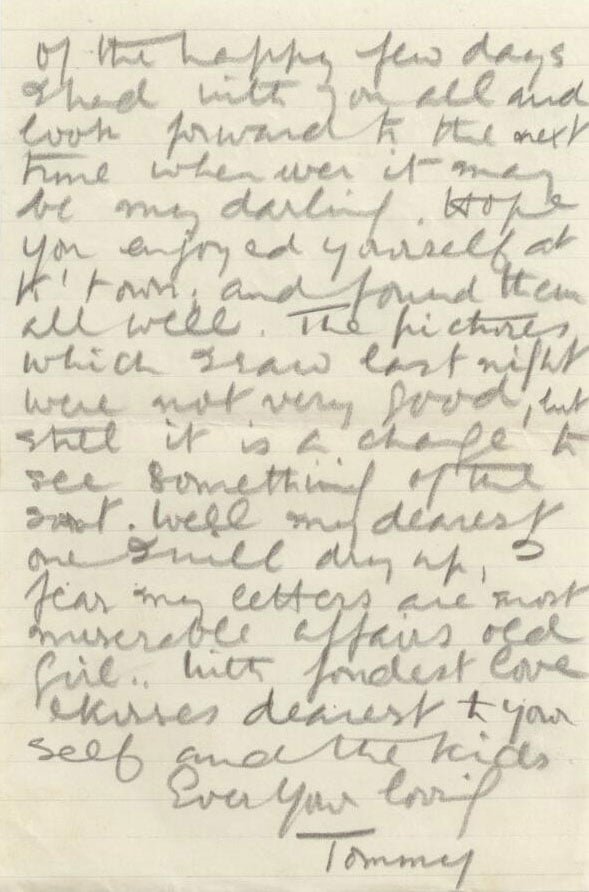 of the happy few days
I had with you all and
look forward to the next
time when ever it may
be my darling. Hope
you enjoyed yourself at
K'town, and found them
all well. The pictures
which I saw last night
were not very good, but
still it is a change to
see something of the
sort. Well my dearest
one I will dry up, I
fear my letters are most
miserable affairs old
girl.. With fondest love
& kisses dearest to your
self and the kids.
Ever Your loving
Tommy